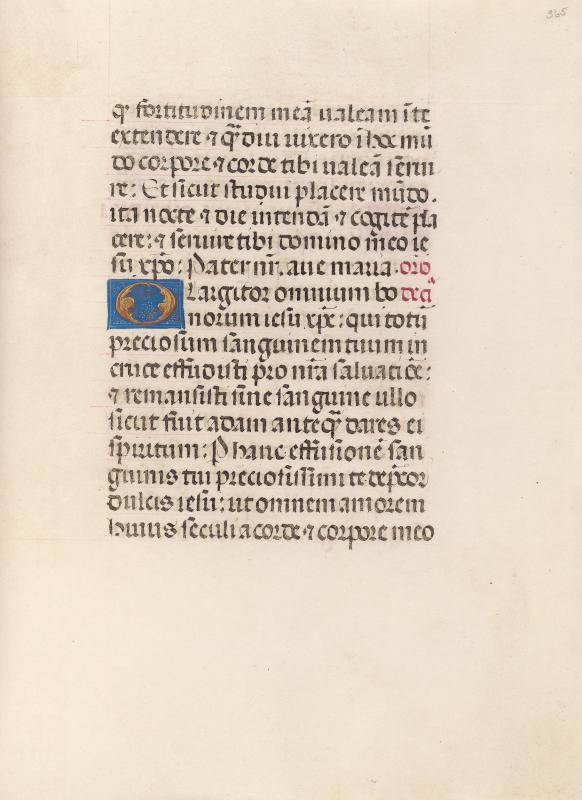 365
qꝫ fortitudinem meā ualeam ī te
extendere ⁊ qͣ̄diu uixero ī hoc mū
do corpore ⁊ corde tibi ualeā serui
re: Et sicut studui placere mūdo.
ita nocte ⁊ die intendā ⁊ cogitē pla
cere: ⁊ seruire tibi domino meo ie
su xp̄o: Pater nr̄. aue maria. or̄o
O Largitor omnium bo deciͣ
norum iesu xp̄e: qui totū
preciosum sanguinem tuum in
cruce effudisti pro nr̄a saluatiōe:
⁊ remansisti sine sanguine ullo
sicut fiut adam anteqͣ̄ dares ei
spiritum: Ꝑ hanc effusionē san
guinis tui preciosissimi te dep̄cor
dulcis iesu: ut omnem amorem
huius seculi a corde ⁊ corpore meo